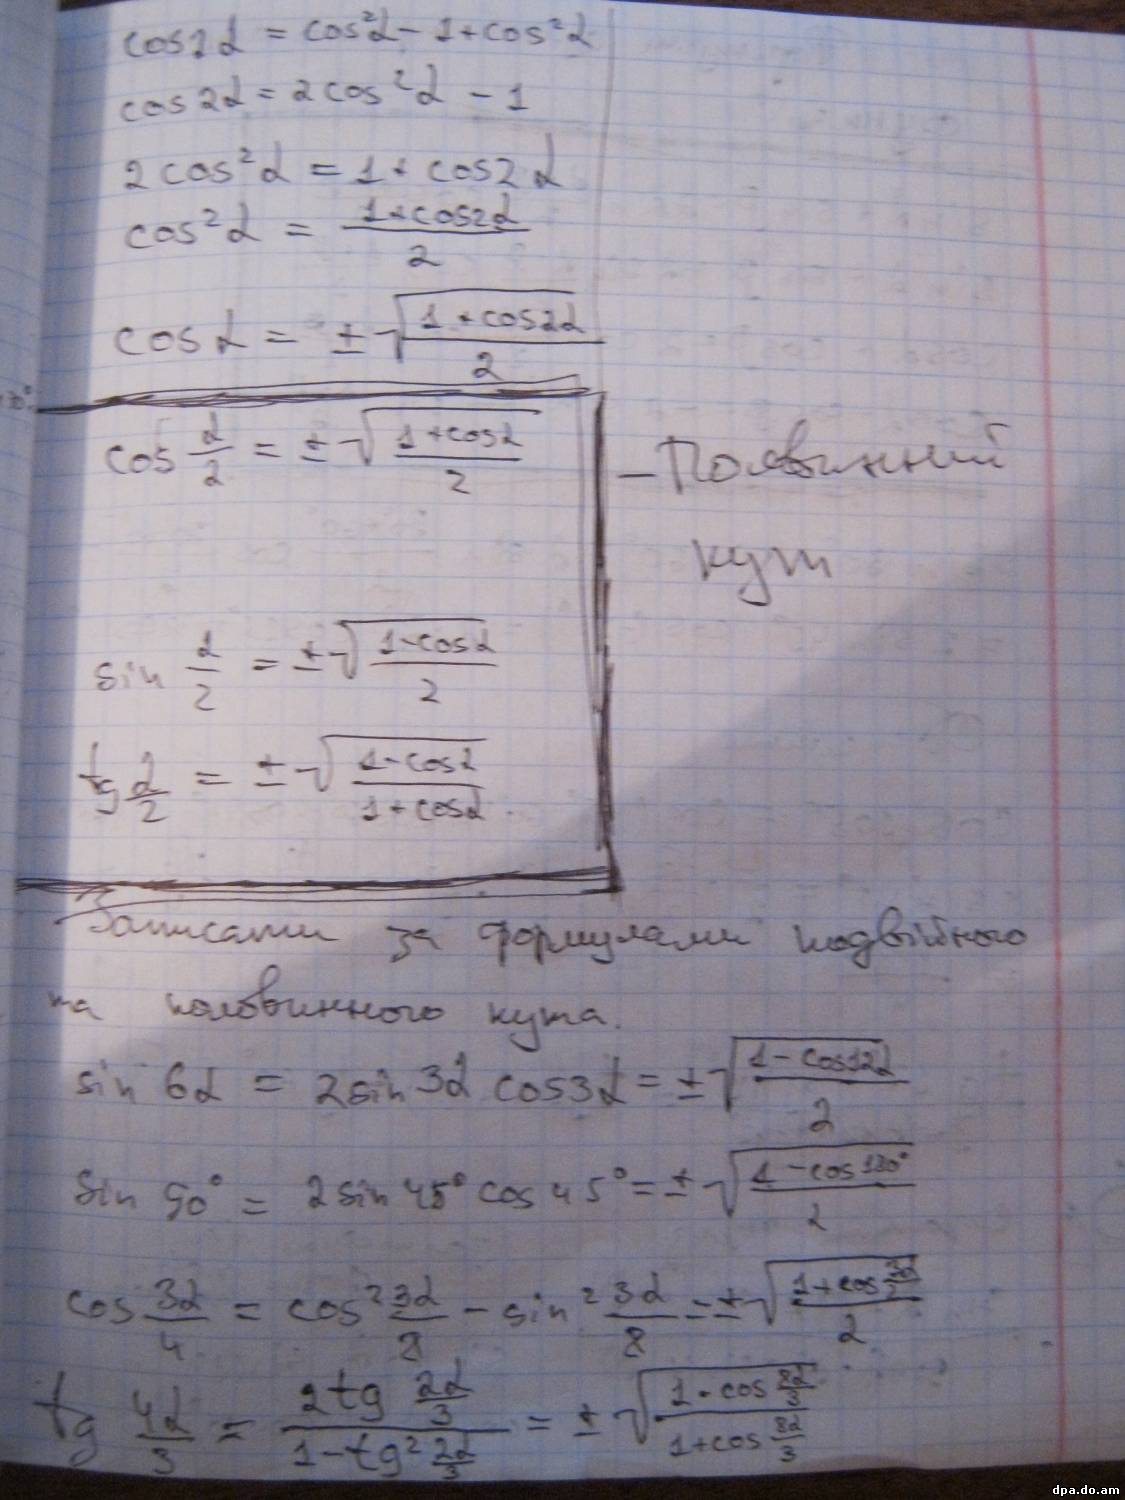 cos2α = cos²α - 1 + cos²α
cos2α = 2cos²α - 1
2cos²α = 1 + cos2α
cos²α = (1+cos2α)/2
cosα = ±√((1+cos2α)/2)
cos α/2 = ±√((1+cosα)/2) - Половинний
кут
sin α/2 = ±√((1-cosα)/2)
tg α/2 = ±√((1-cosα)/(1+cosα))
Записати за формулами подвійного
та половинного кута.
sin 6α = 2sin 3α cos3α = ±√((1-cos12α)/2)
sin 90° = 2sin 45° cos 45° = ±√((1-cos180°)/2)
cos 3α/4 = cos² 3α/8 - sin² 3α/8 = ±√((1+cos 3α/2)/2)
tg 4α/3 = (2tg 2α/3)/(1-tg² 2α/3) = ±√((1-cos 8α/3)/(1+cos 8α/3))
dpa.do.am